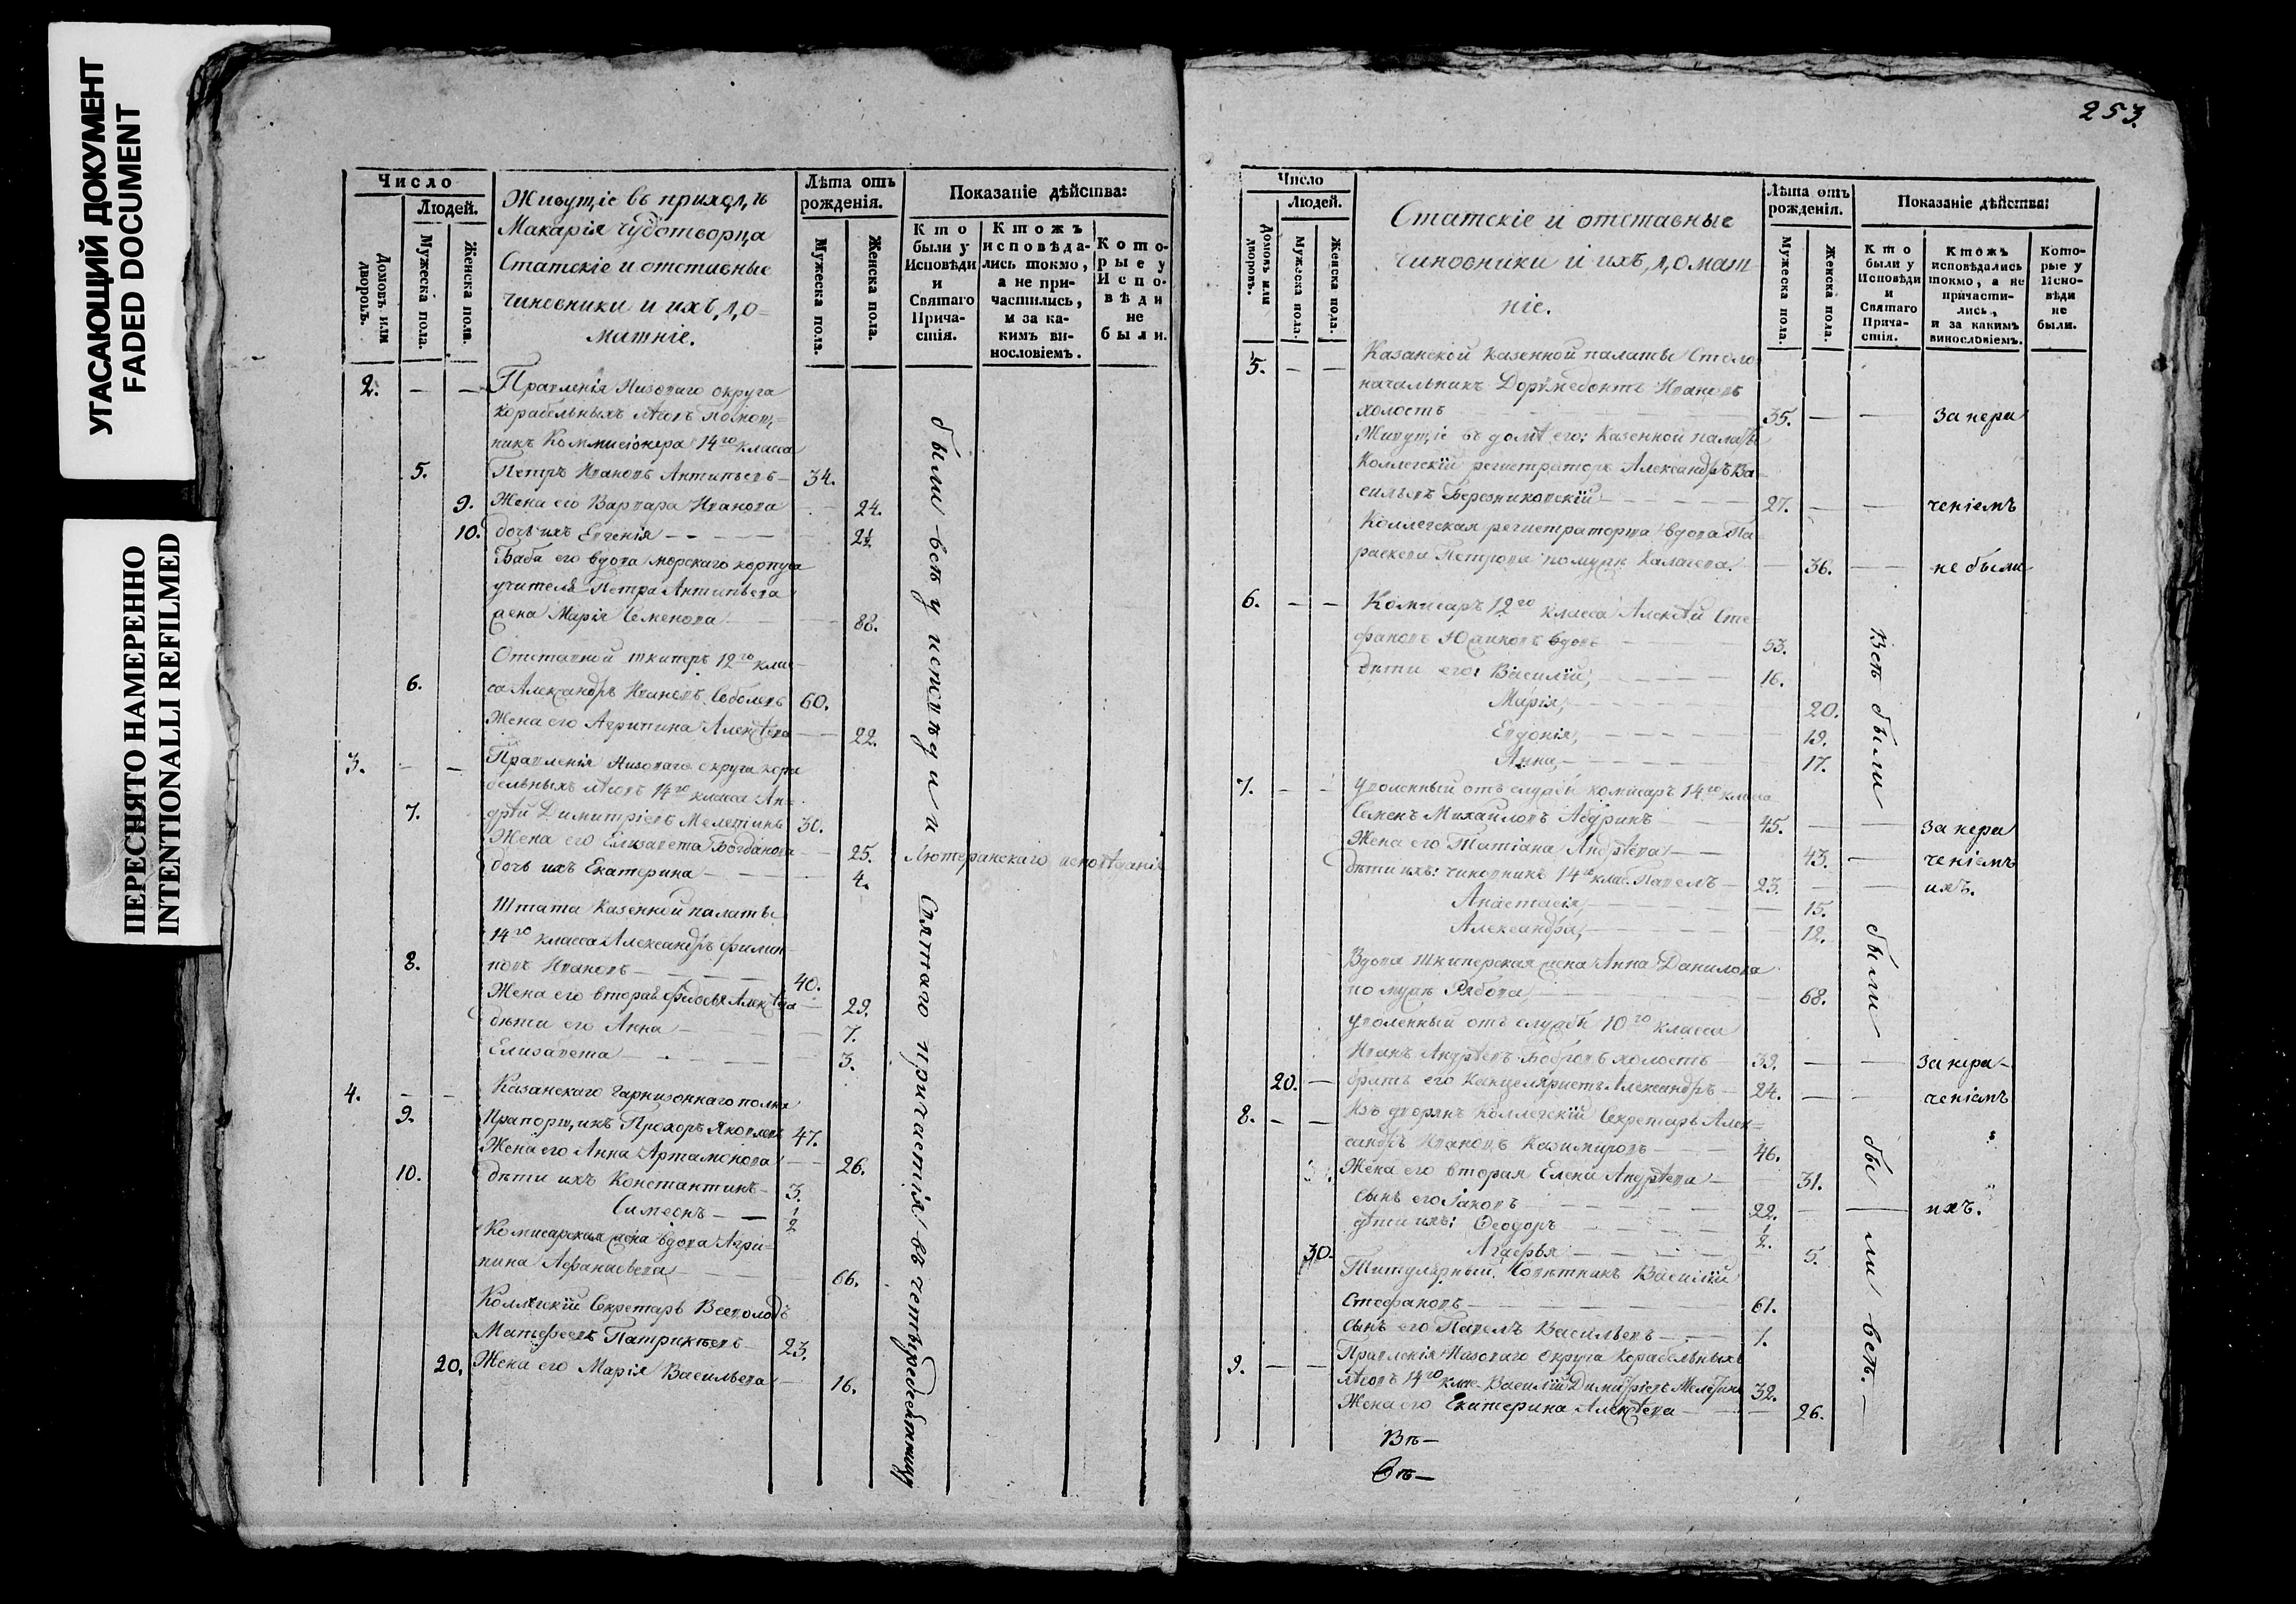 УГАСАЮЩИЙ ДОКУМЕНТ
FADED DOCUMENT
ПЕРЕСНЯТО НАМЕРЕННО
INTENTIONALLI REFILMED
Число
Людей.
Домовъ или дворовъ.
Мужеска пола.
Женска пола.
Живущіе въ приходѣ
Макарія Чудотворца
Статскіе и отставные
чиновники и ихъ до=
машніе.
Лѣта отъ рожденія.
Мужеска пола.
Женска пола.
Показаніе дѣйства:
Кто были у Исповѣди и Святаго Причастія.
Ктожъ исповѣдались токмо, а не причастились, и за какимъ винословіемъ.
Которые у Исповѣди не были.
2. — — Правленія Низоваго округа
корабельныхъ лѣсовъ помощ=
никъ Коммисіонера 14го класса
5. Петръ Ивановъ Антипьевъ — 34.
9. Жена его Варвара Иванова — 24.
10. дочь ихъ Евгенія — 2½
Баба его вдова морскаго корпуса
учителя Петра Антипьева
жена Марія Семенова — 88.
Отставной шкиперъ 12го клас-
6. са Александръ Ивановъ Соболевъ 60.
Жена его Агрипина Алексѣева — 22.
3. — — Правленія Низоваго округа кора
бельныхъ лѣсовъ 14го класса Ан=
7. дрѣй Димитріевъ Мелетинъ 30.
Жена его Елизавета Богданова — 25. Лютеранскаго исповѣданія
дочь ихъ Екатерина — 4.
Штата Казенной палаты
14го класса Александръ Филип
8. повъ Ивановъ — 40.
Жена его вторая Федосья Алексѣева — 29.
дѣти его Анна — 7.
Елизавета — 3.
4. — — Казанскаго гарнизоннаго полка
9. Прапорщикъ Прохоръ Яковлевъ 47.
Жена его Анна Артамонова — 26.
10. дѣти ихъ Константинъ — 3.
Симеонъ — ½
Комисарская жена вдова Агри=
пина Афанасьева — 66.
Коллежскій Секретарь Всеволодъ
Матфеевъ Патрикѣевъ — 23.
20. Жена его Марія Васильева — 16.
были всѣ у исповѣди и Святаго причастія въ четыредесятницу
253.
Число
Людей.
Домовъ или дворовъ.
Мужеска пола.
Женска пола.
Статскіе и отставные
чиновники и ихъ домаш
ніе.
Лѣта отъ рожденія.
Мужеска пола.
Женска пола.
Показаніе дѣйства:
Кто были у Исповѣди и Святаго Причастія.
Ктожъ исповѣдались токмо, а не причастились, и за какимъ винословіемъ.
Которые у Исповѣди не были.
5. — — Казанской казенной палаты Столо
начальникъ Доримедонтъ Ивановъ
холостъ — 35. — — за нера
Живущіе въ домѣ его: Казенной палаты
Коллегскій регистраторъ Александръ Ва-
сильевъ Березниковскій — 27. — — ченіемъ
Коллегская регистраторша вдова Па-
раскева Петрова по мужѣ Калагева — 36. — — не были
6. — — Комисаръ 12го класса Алексѣй Сте
фановъ вдовъ — 53.
дѣти его: Василій, — 16.
Марія, — 20.
Евдокія, — 19.
Анна, — 17.
7. — — Уволенный отъ службы комисаръ 14го класса
Семенъ Михайловъ — 45. — — за нера
Жена его Татіана Андрѣева — 43. — ченіемъ
дѣти ихъ: чиновникъ 14го клас. Павелъ — 23. — — ихъ.
Анастасія, — 15.
Александра, — 12.
Вдова шкиперская жена Анна Данилова
по мужѣ Рябова — 68.
Уволенный отъ службы 10го класса
Иванъ Андрѣевъ Бобровъ холостъ — 39. — — за нера-
20. — братъ его канцеляристъ Александръ — 24. — — ченіемъ
8. — — Изъ дворянъ Коллегскій Секретарь Алек=
сандръ Ивановъ Казимировъ — 46.
Жена его вторая Елена Андрѣева — 31.
сынъ его Іаковъ — 22. — — ихъ.
дѣти ихъ: Ѳеодоръ — ½.
30. Агафья — 5.
Титулярный Совѣтникъ Василій
Стефановъ — 61.
сынъ его Павелъ Васильевъ — 1.
9. — — Правленія Низоваго Округа Корабельныхъ
лѣсовъ 14го клас. Василій Димитріевъ Мелетинъ 32.
Жена его Екатерина Алексѣева — 26.
Всѣ были были были всѣ. —
Въ —